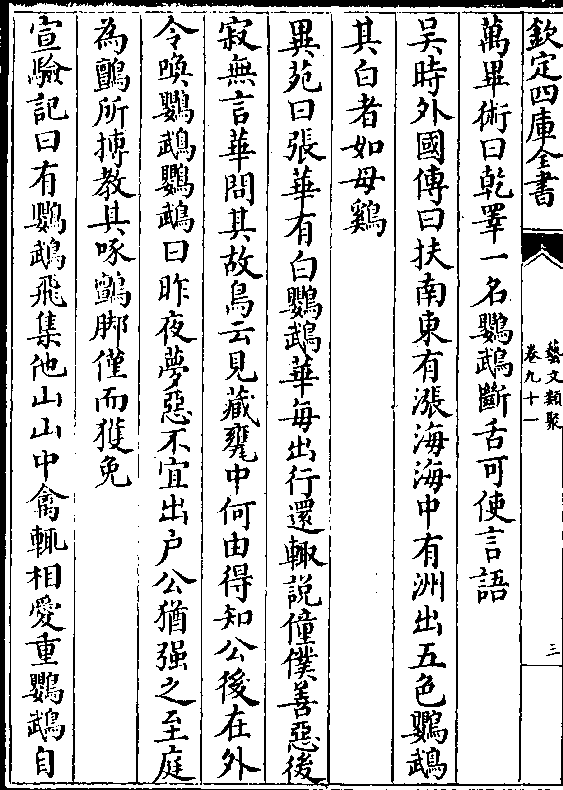 欽定四庫全書
藝文類聚
卷九十一
三
萬畢術曰乾睪一名鸚鵡斷舌可使言語
吳時外國傳曰扶南東有漲海海中有洲出五色鸚鵡
其白者如母鷄
異苑曰張華有白鸚鵡華每出行還輙説僮僕善惡後
寂無言華問其故鳥云見藏甕中何由得知公後在外
令喚鸚鵡鸚鵡曰昨夜夢惡不宜出户公猶强之至庭
為鸇所搏教其啄鸇脚僅而獲免
宣驗記曰有鸚鵡飛集他山山中禽輒相愛重鸚鵡自